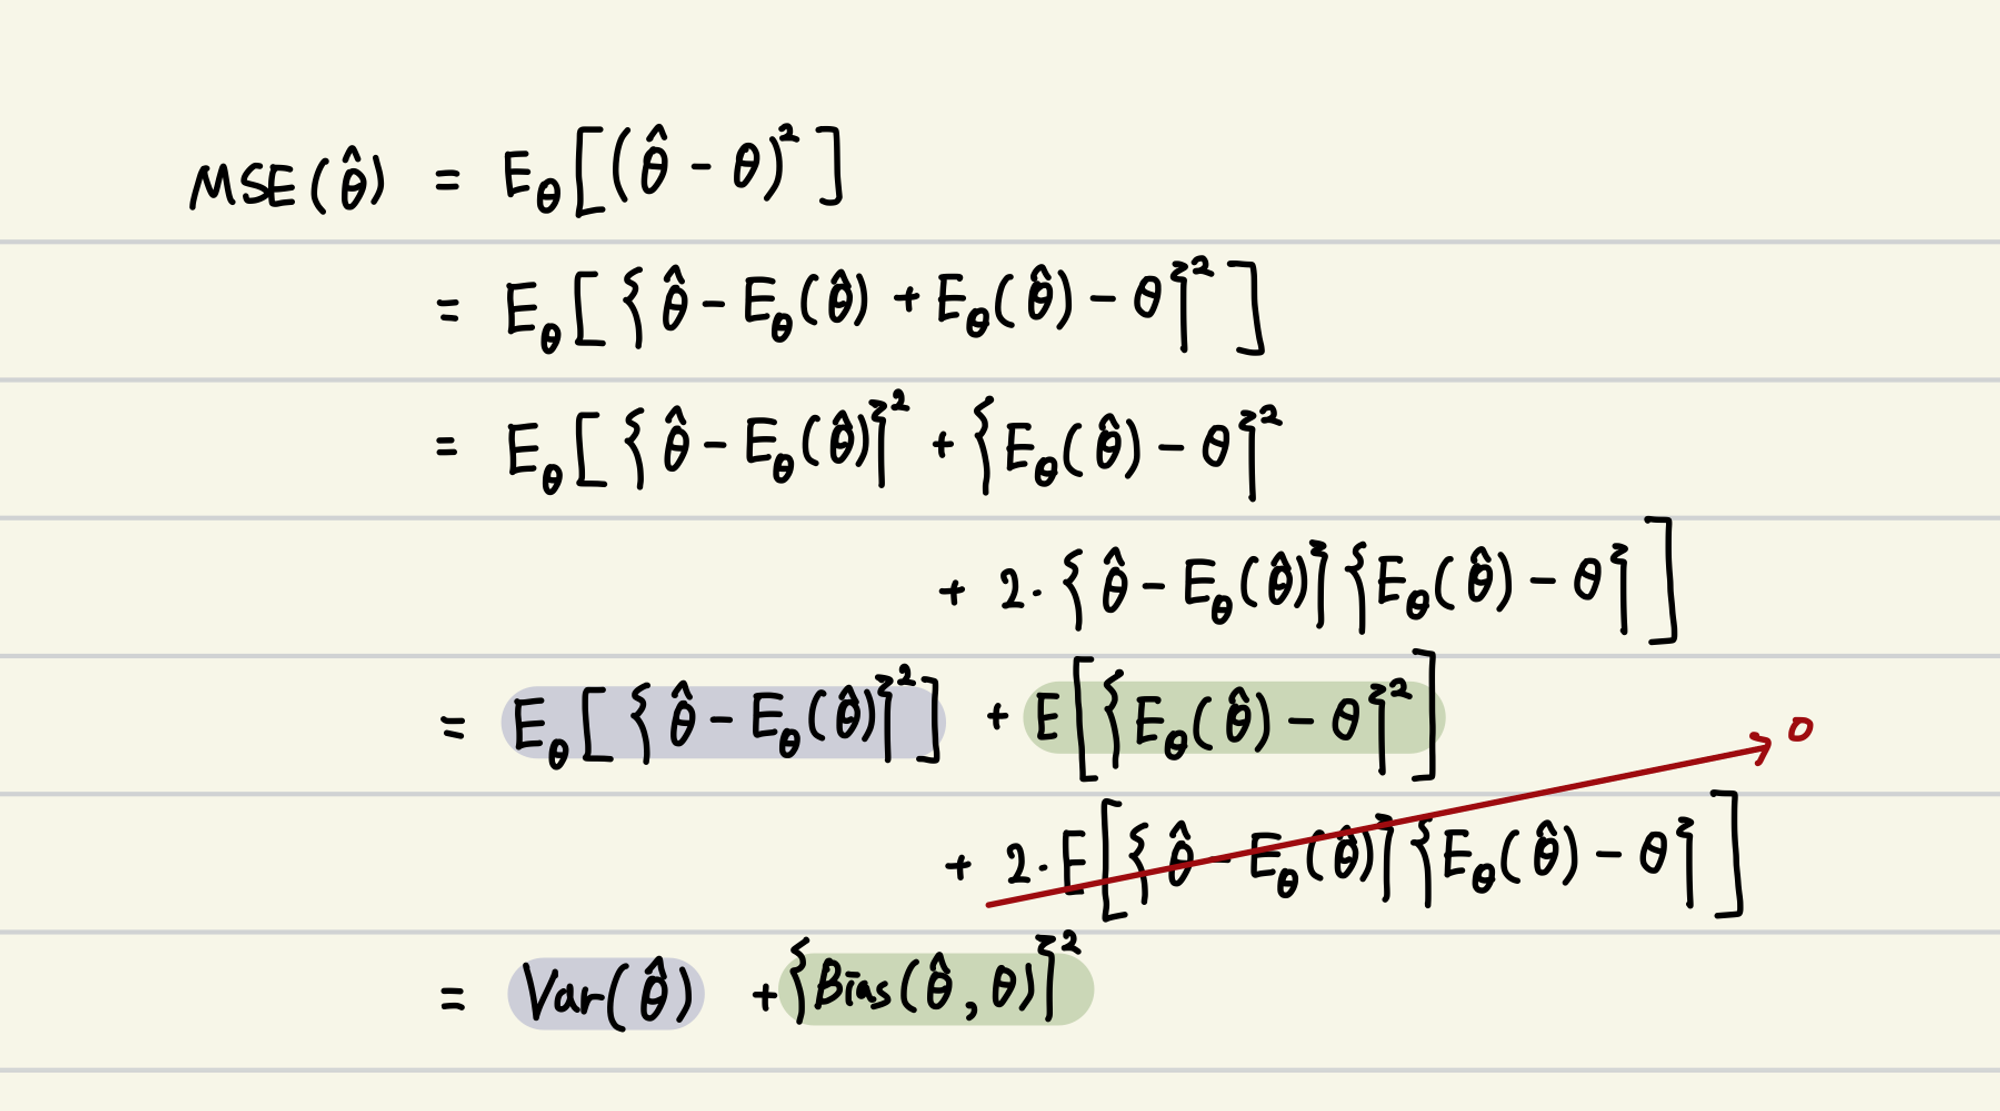 MSE(θ̂) = E_θ[(θ̂ - θ)²]
= E_θ[{θ̂ - E_θ(θ̂) + E_θ(θ̂) - θ}²]
= E_θ[{θ̂ - E_θ(θ̂)}² + {E_θ(θ̂) - θ}²
+ 2·{θ̂ - E_θ(θ̂)}{E_θ(θ̂) - θ}]
= E_θ[{θ̂ - E_θ(θ̂)}²] + E[{E_θ(θ̂) - θ}²]
0
+ 2·E[{θ̂ - E_θ(θ̂)}{E_θ(θ̂) - θ}]
= Var(θ̂) + {Bias(θ̂, θ)}²